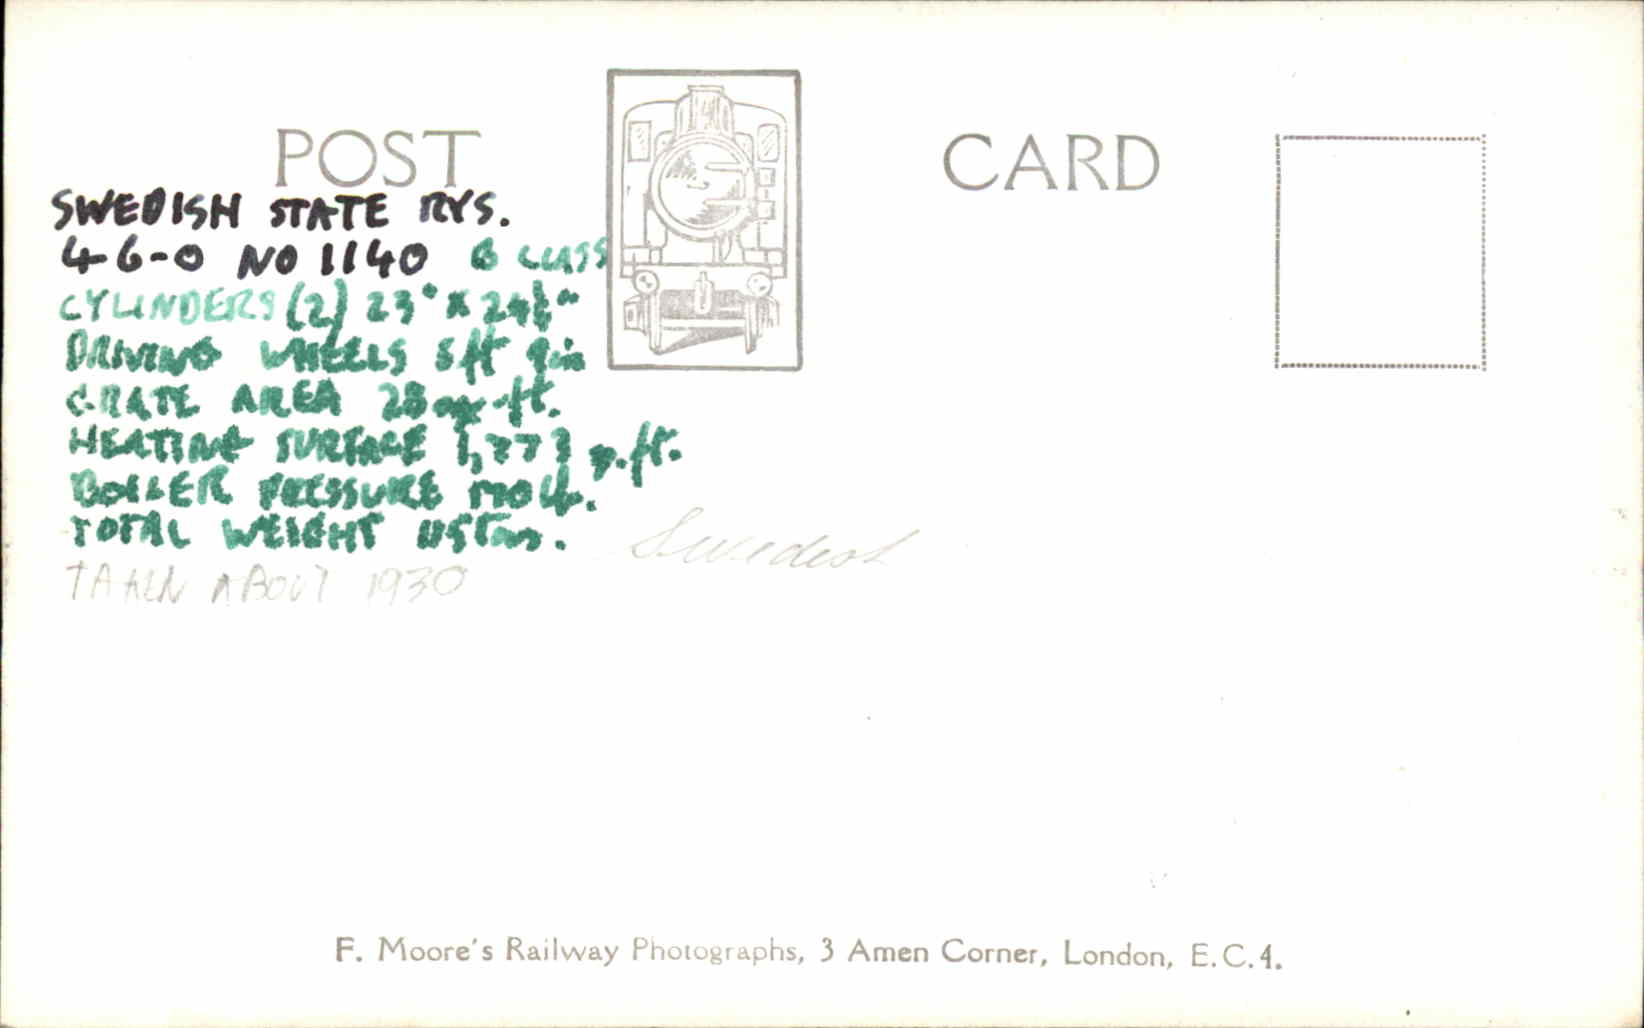 POST CARD
SWEDISH STATE RYS.
4-6-0 NO 1140 B CLASS
CYLINDERS (2) 23" X 24⅜"
DRIVING WHEELS 5ft 9in
GRATE AREA 28 sq. ft.
HEATING SURFACE 1,773 sq. ft.
BOILER PRESSURE 170 lb.
TOTAL WEIGHT tons.
Swedish
TAKEN ABOUT 1930
F. Moore's Railway Photographs, 3 Amen Corner, London, E.C.4.